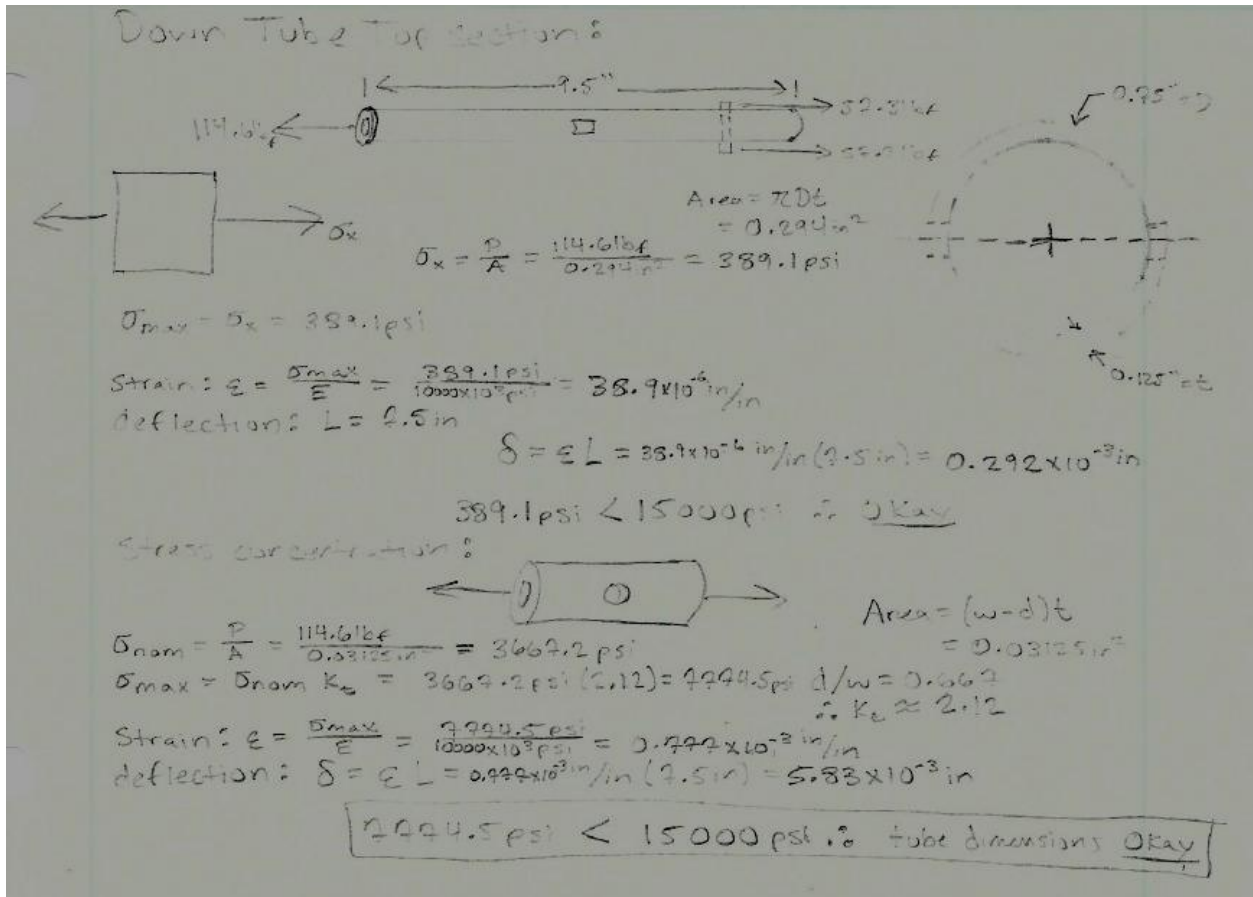 Down Tube Top Section:
9.5"
114.6lbf
57.3lbf
57.3lbf
0.75"=D
Area = πDt
= 0.294in²
σx
σx = P/A = 114.6lbf/0.294in² = 389.1psi
σmax = σx = 389.1psi
0.125"=t
Strain: ε = σmax/E = 389.1psi/10000x10³psi = 38.9x10⁻⁶in/in
deflection: L= 7.5in
δ = εL = 38.9x10⁻⁶ in/in (7.5in) = 0.292x10⁻³in
389.1psi < 15000psi ∴ Okay
Stress concentration:
Area = (w-d)t
= 0.03125in²
σnom = P/A = 114.6lbf/0.03125in² = 3667.2psi
σmax = σnom Kt = 3667.2psi (2.12) = 7774.5psi d/w = 0.667
∴ Kt ≈ 2.12
Strain: ε = σmax/E = 7774.5psi/10000x10³psi = 0.777x10⁻³in/in
deflection: δ = εL = 0.777x10⁻³in/in (7.5in) = 5.83x10⁻³in
7774.5psi < 15000psi ∴ tube dimensions Okay